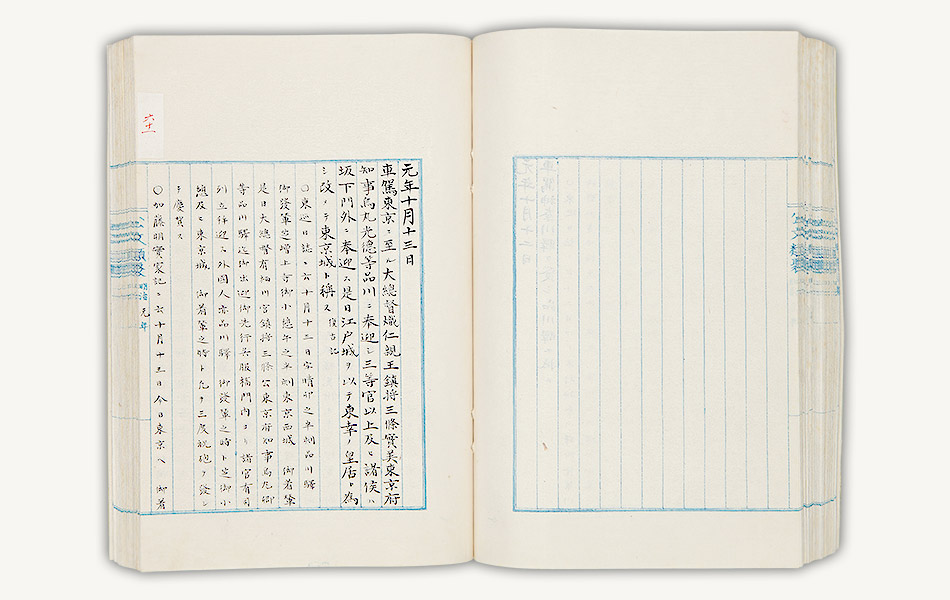 元年十月十三日
車駕東京ニ至ル大總督熾仁親王鎮将三條實美東京府
知事烏丸光德等品川ニ奉迎シ三等官以上及ヒ諸侯ハ
坂下門外ニ奉迎ス是日江戸城ヲ以テ東幸ノ皇居ト為
シ改メテ東京城ト稱ス 復古記
〇東巡日誌ニ云十月十三日癸晴卯之半刻品川驛
御發輦芝増上寺御小憩午之半刻東京西城 御着輦
是日大總督有栖川宮鎮将三條公東京府知事烏丸卿
等品川驛迄御出迎御先行呉服橋門内ヨリ諸官有司
列立拜迎ス外國人亦品川驛 御發輦之時ト芝御小
憩及ヒ東京城 御着輦之時ト凡テ三度祝砲ヲ發シ
テ慶賀ス
〇加藤明實家記ニ云十月十三日今日東京ヘ 御着
六十一
明治 元年